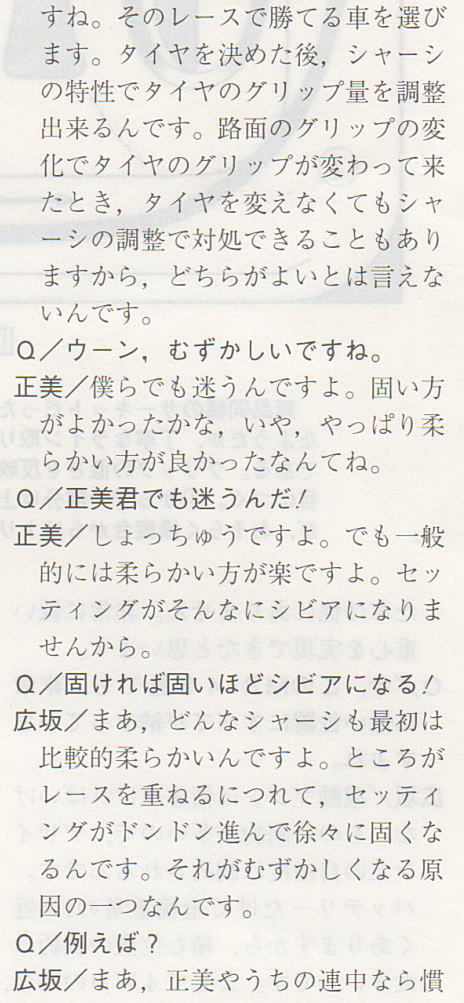 すね。そのレースで勝てる車を選び
ます。タイヤを決めた後，シャーシ
の特性でタイヤのグリップ量を調整
出来るんです。路面のグリップの変
化でタイヤのグリップが変わって来
たとき，タイヤを変えなくてもシャ
ーシの調整で対処できることもあり
ますから，どちらがよいとは言えな
いんです。
Q／ウーン，むずかしいですね。
正美／僕らでも迷うんですよ。固い方
がよかったかな，いや，やっぱり柔
らかい方が良かったなんてね。
Q／正美君でも迷うんだ！
正美／しょっちゅうですよ。でも一般
的には柔らかい方が楽ですよ。セッ
ティングがそんなにシビアになりま
せんから。
Q／固ければ固いほどシビアになる！
広坂／まあ，どんなシャーシも最初は
比較的柔らかいんですよ。ところが
レースを重ねるにつれて，セッティ
ングがドンドン進んで徐々に固くな
るんです。それがむずかしくなる原
因の一つなんです。
Q／例えば？
広坂／まあ，正美やうちの連中なら慣